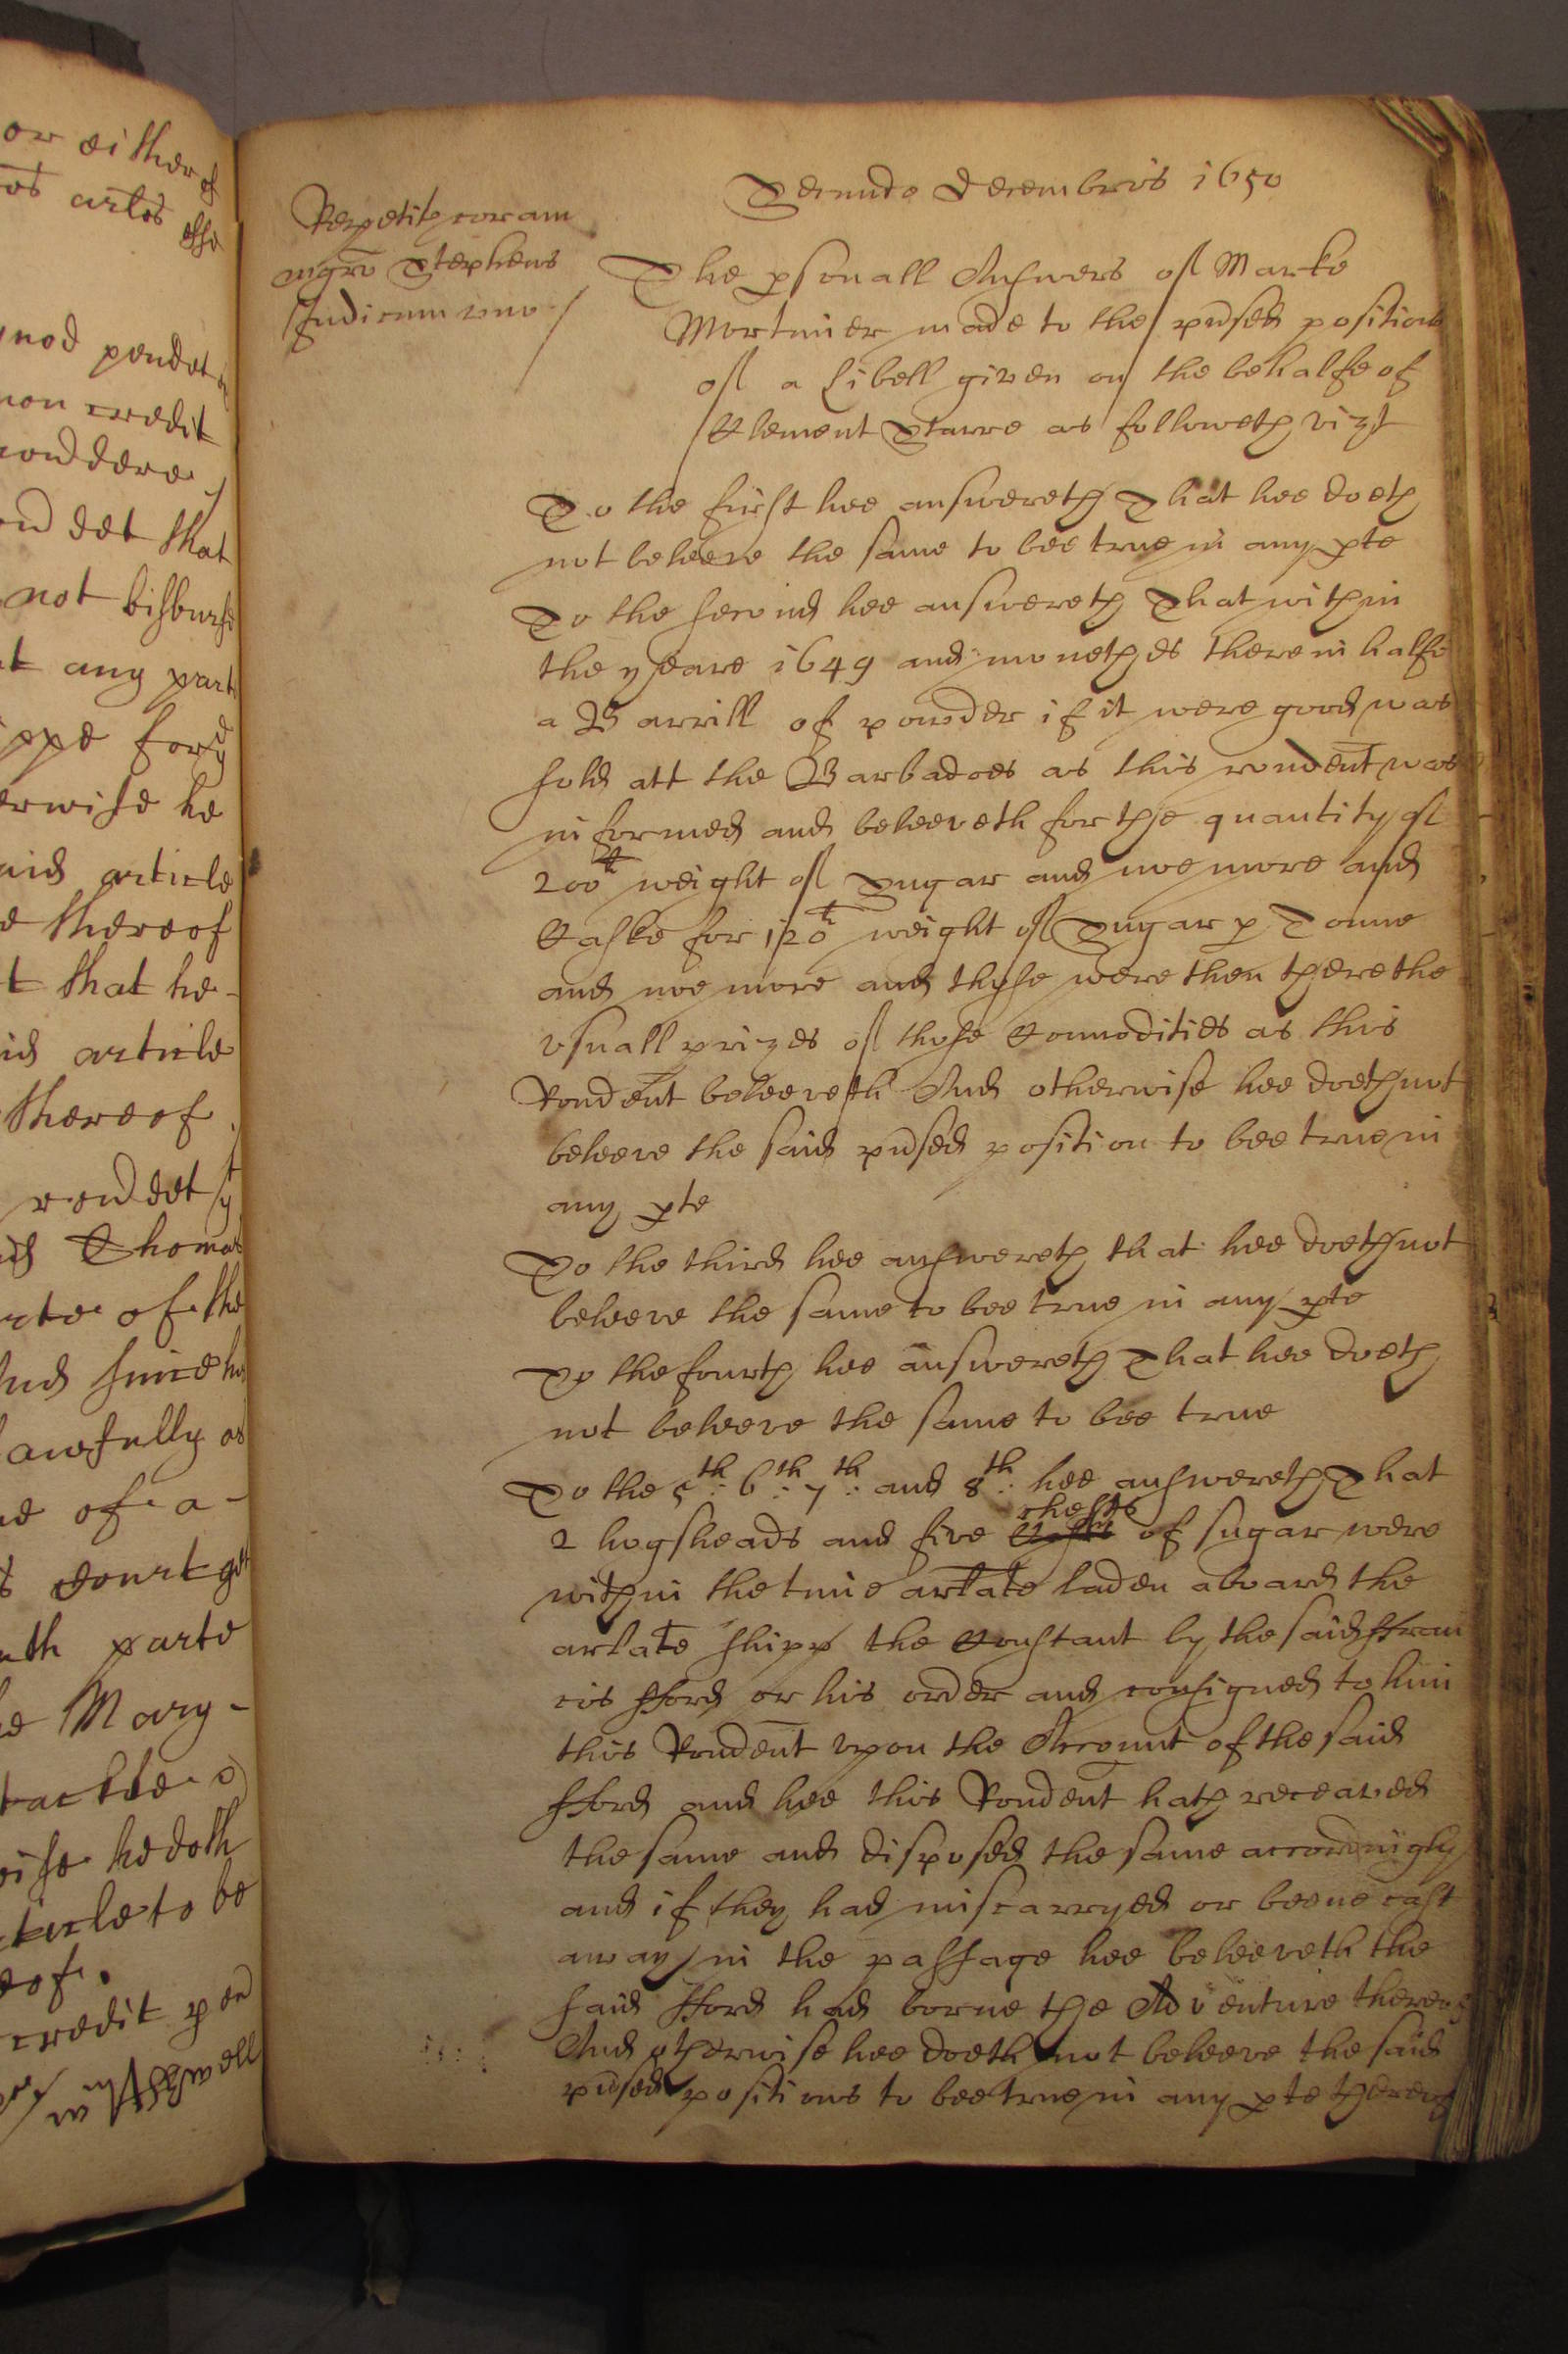 or either of
artos esse
quod pendet
non credit
pondere
det that
not disburse
any part
ippe for
erwise he
aid article
e thereof
t that he
id article
thereof
rondet
Thomas
rte of the
And since
lawfully
e of a
Court
nth parte
he Mary
tackle
wise he doth
ticle to be
eof.
credit
Repetit coram
mgro Stephens
Judicum uno
Secundo Decembris 1650
The psonall Answers of Marke
Mortimer made to the pnsed positions
of a Libell given on the behalfe of
Clement Starre as followeth vizt
To the first hee answereth That hee doeth
not beleeve the same to bee true in any pte
To the second hee answereth That within
the yeare 1649 and monethes therein halfe
a Barrill of powder if it were good was
sold att the Barbadoes as this rondent was
informed and beleeveth for the quantity of
200th weight of Sugar and noe more and
Caske for 120th weight of Sugar p Tonne
and noe more and those were then there the
usuall prizes of those Comodities as this
Rondent beleeveth And otherwise hee doeth not
beleeve the said pnsed position to bee true in
any pte
To the third hee answereth that hee doeth not
beleeve the same to bee true in any pte
To the fourth hee answereth That hee doeth
not beleeve the same to bee true
To the 5th: 6th: 7th: and 8th: hee answereth That
chests
2 hogsheads and five of sugar were
within the time arlate laden aboard the
arlate shipp the Constant by the said Fran
cis Fford or his order and consigned to him
this Rondent upon the Account of the said
Fford and hee this Rondent hath receaved
the same and disposed the same accordingly
and if they had miscarryed or beene cast
away in the passage hee beleeveth the
said Fford had borne the Adventure thereof
And otherwise hee doeth not beleeve the said
pnsed positions to bee true in any pte thereof